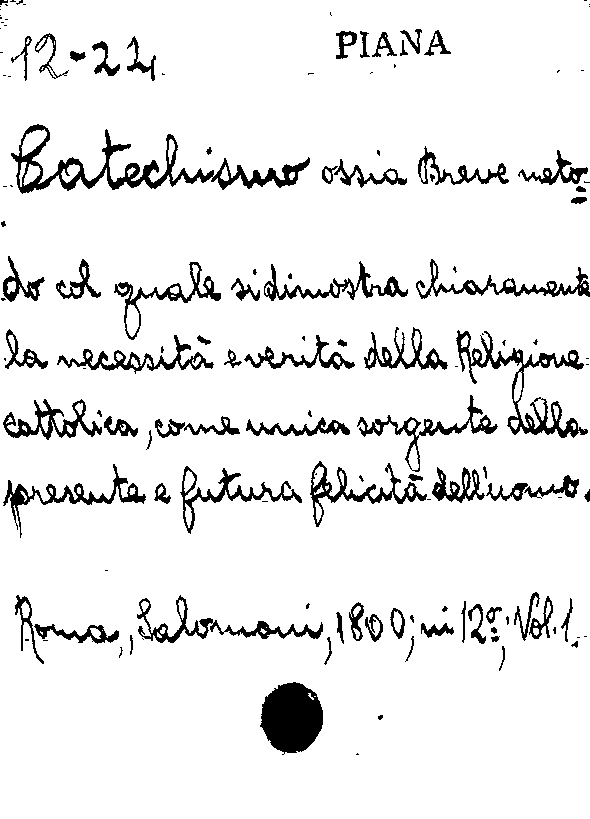 PIANA
12-22
Catechismo ossia Breve meto=
do col quale si dimostra chiaramente
la necessità e verità della Religione
cattolica, come unica sorgente della
presente e futura felicità dell'uomo.
Roma, Salomoni, 1800; in 12º; Vol. 1.